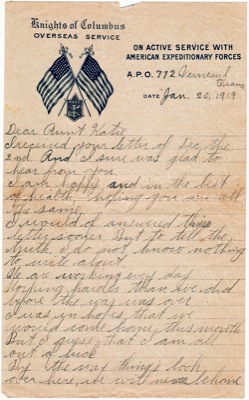 Knights of Columbus
OVERSEAS SERVICE
ON ACTIVE SERVICE WITH
AMERICAN EXPEDITIONARY FORCES
A.P.O. 772 Verneuil
France
DATE Jan. 20, 1919.
Dear Aunt Katie
I received your letter of Dec. the
2nd And I sure was glad to
hear from you.
I am happy and in the best
of health. hoping you are all
the same.
I would of answered this
letter sooner. But to tell the
truth. I do not know nothing
to write about.
We are working every day
working harder than we did
before the war was over
I was in hopes, that we
would come home, this month
But, I guess, that I am all
out of luck.
By the way things look,
over here, we will never be home